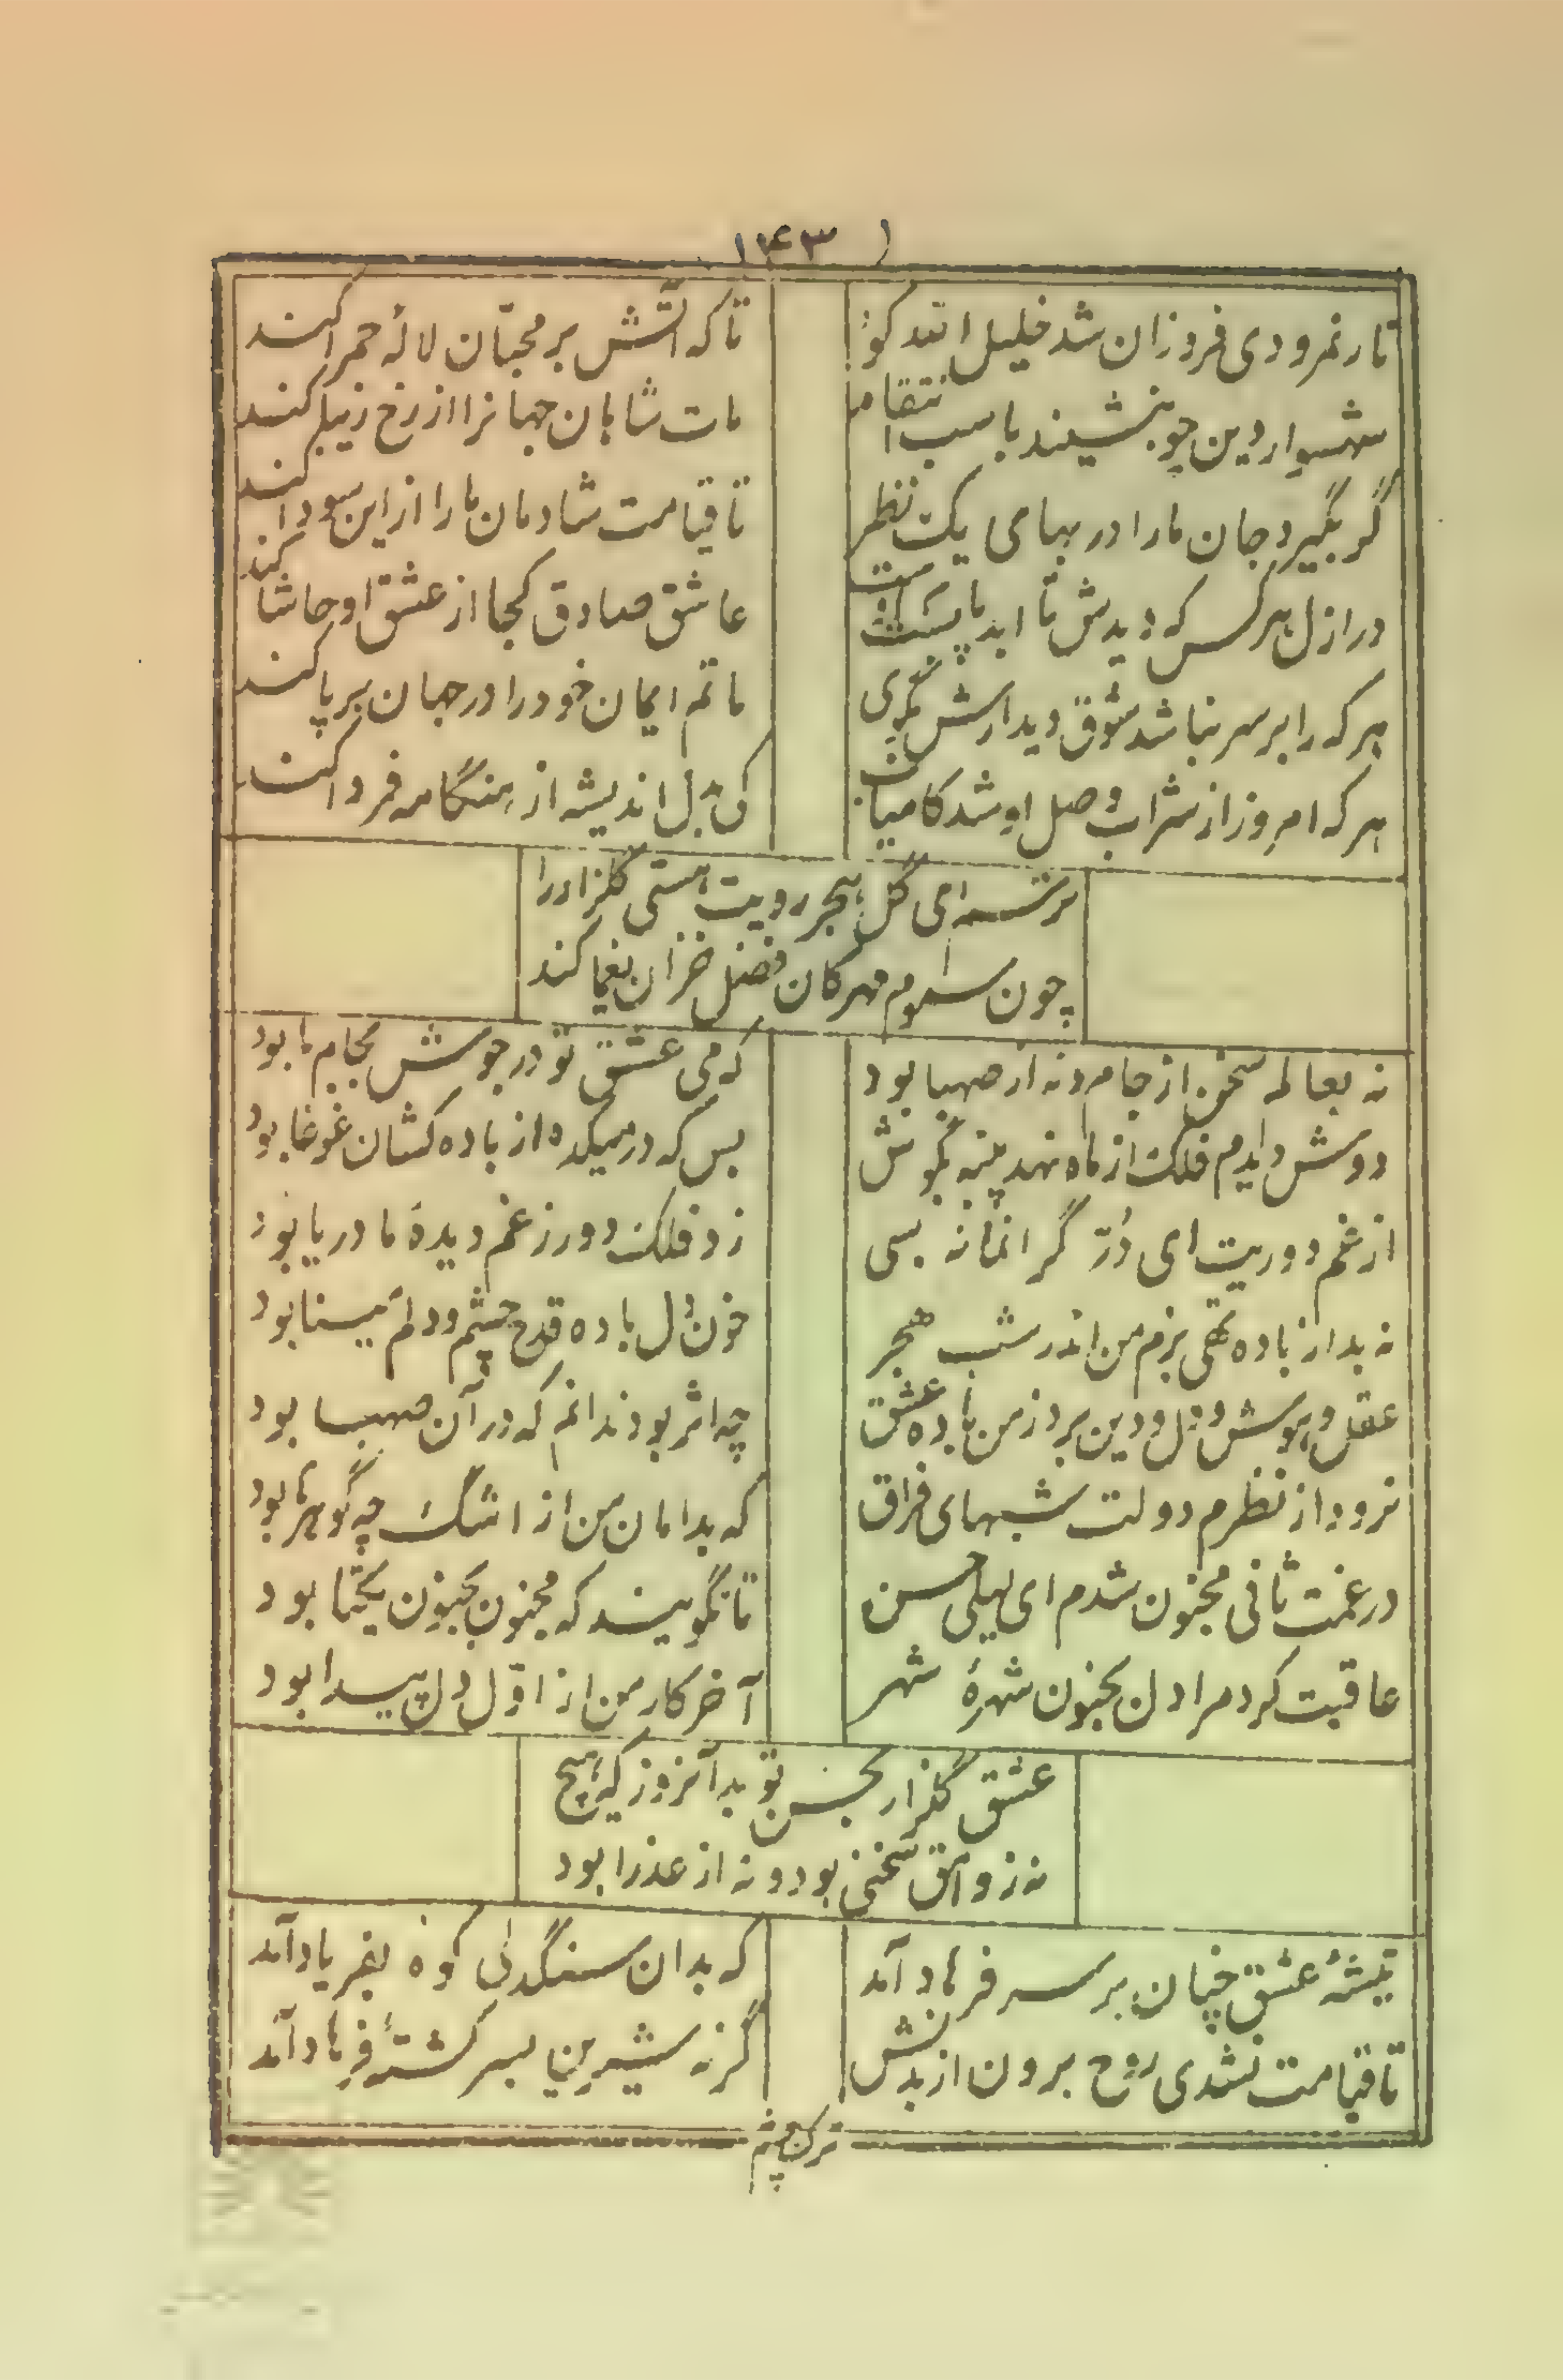 ۱۴۳
نار نمرودی فروزان شد خلیل الله کو
تا که آتش بر محبّان لالهٔ حمرا کند
شهسوار دین چو بنشیند باسب انتقام
مات شاهان جهانرا از رخ زیبا کند
گر بگیرد جان ما را در بهای یک نظر
تا قیامت شادمان ما را از این سودا کند
در ازل هر کس که دیدش تا ابد پاپست اوست
عاشق صادق کجا از عشق او حاشا کند
هر که را بر سر نباشد شوق دیدارش بگوی
ماتم ایمان خود را در جهان برپا کند
هر که امروز از شراب وصل او شد کامیاب
کی بدل اندیشه از هنگامه فردا کند
ای گل هجر رویت هستی گلزار را
چون سموم مهرکان فصل خزان یغما کند
نه بعالم سخن از جام و نه از صهبا بود
که می عشق تو در جوش بجام ما بود
دوش دیدم فلک از ماه نهد پنبه بگوش
بس که در میکده از باده کشان غوغا بود
از غم دوریت ای دُرّ گرانمانه بسی
زد فلک دور ز غم دیدهٔ ما دریا بود
نه بد از باده تهی بزم من اندر شب هجر
خون دل باده قدح چشم و دلم مینا بود
عقل و هوش و دل و دین برد ز من باده عشق
چه اثر بود ندانم که در آن صهبا بود
نرود از نظرم دولت شبهای فراق
که بدامان من از اشک چه گوهرها بود
در غمت ثانی مجنون شدم ای لیلی حسن
تا نگویند که مجنون بجنون یکتا بود
عاقبت کرد مرا دل بجنون شهرهٔ شهر
آخر کار من از اوّل دل پیدا بود
عشق گلزار بحسن تو بد آنروز که هیچ
نه ز وامق سخنی بود و نه از عذرا بود
تیشهٔ عشق چنان بر سر فرهاد آمد
که بدان سنگدلی کوه بفریاد آمد
تا قیامت نشدی روح برون از بدنش
گر نه شیرین بسر کشتهٔ فرهاد آمد
ترک چشم